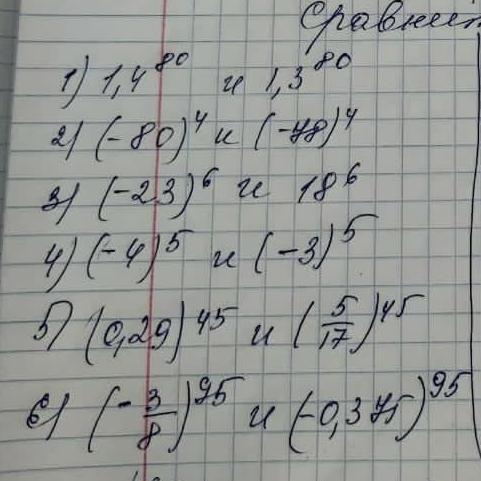 Сравнит
1) 1,4^80 и 1,3^80
2) (-80)^4 и (-78)^4
3) (-23)^6 и 18^6
4) (-4)^5 и (-3)^5
5) (0,29)^45 и (5/17)^45
6) (-3/8)^95 и (-0,375)^95